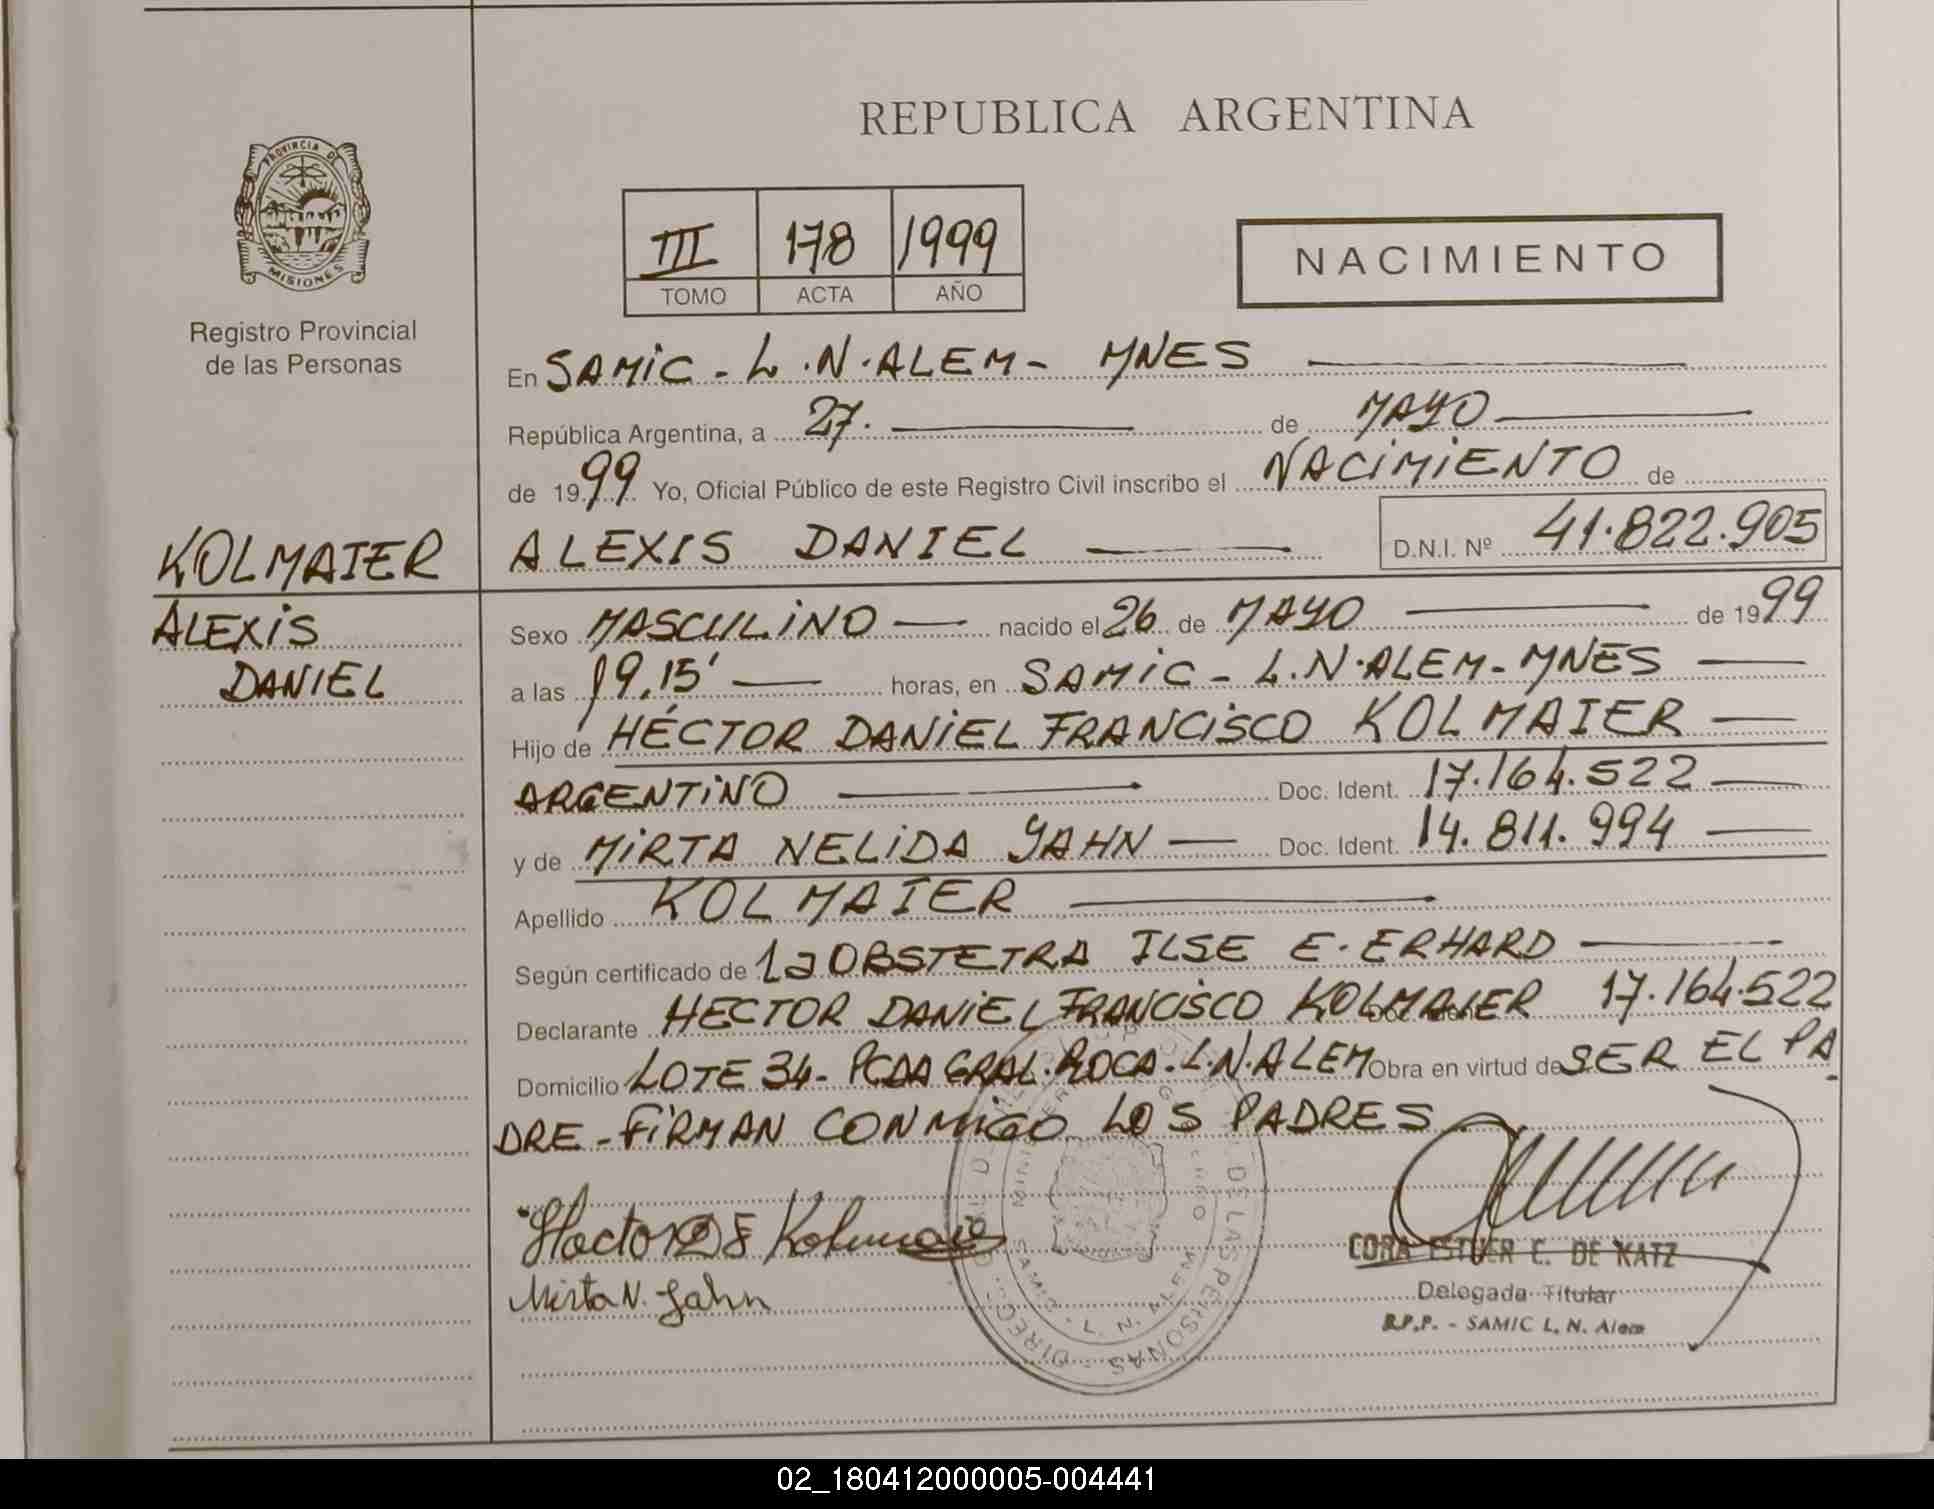 REPUBLICA ARGENTINA
PROVINCIA DE
MISIONES
Registro Provincial
de las Personas
III 178 1999
TOMO ACTA AÑO
NACIMIENTO
En SAMIC - L.N.ALEM - MNES
República Argentina, a 27. de MAYO
de 1999 Yo, Oficial Público de este Registro Civil inscribo el NACIMIENTO de
KOLMAIER ALEXIS DANIEL D.N.I. Nº 41.822.905
ALEXIS
DANIEL
Sexo MASCULINO nacido el 26 de MAYO de 1999
a las 19.15' horas, en SAMIC - L.N.ALEM - MNES
Hijo de HÉCTOR DANIEL FRANCISCO KOLMAIER
ARGENTINO Doc. Ident. 17.164.522
y de MIRTA NELIDA YAHN Doc. Ident. 14.811.994
Apellido KOLMAIER
Según certificado de la OBSTETRA ILSE E. ERHARD
Declarante HECTOR DANIEL FRANCISCO KOLMAIER 17.164.522
Domicilio LOTE 34 - PCDA GRAL. ROCA. L.N.ALEM Obra en virtud de SER EL PA
DRE - FIRMAN CONMIGO LOS PADRES
Hector D F Kolmaier
Mirta N. Jahn
CORA ESTHER C. DE KATZ
Delegada Titular
R.P.P. - SAMIC L. N. Alem
DE LAS PERSONAS - DIREC
SAMIC - L. N. ALEM
02_180412000005-004441